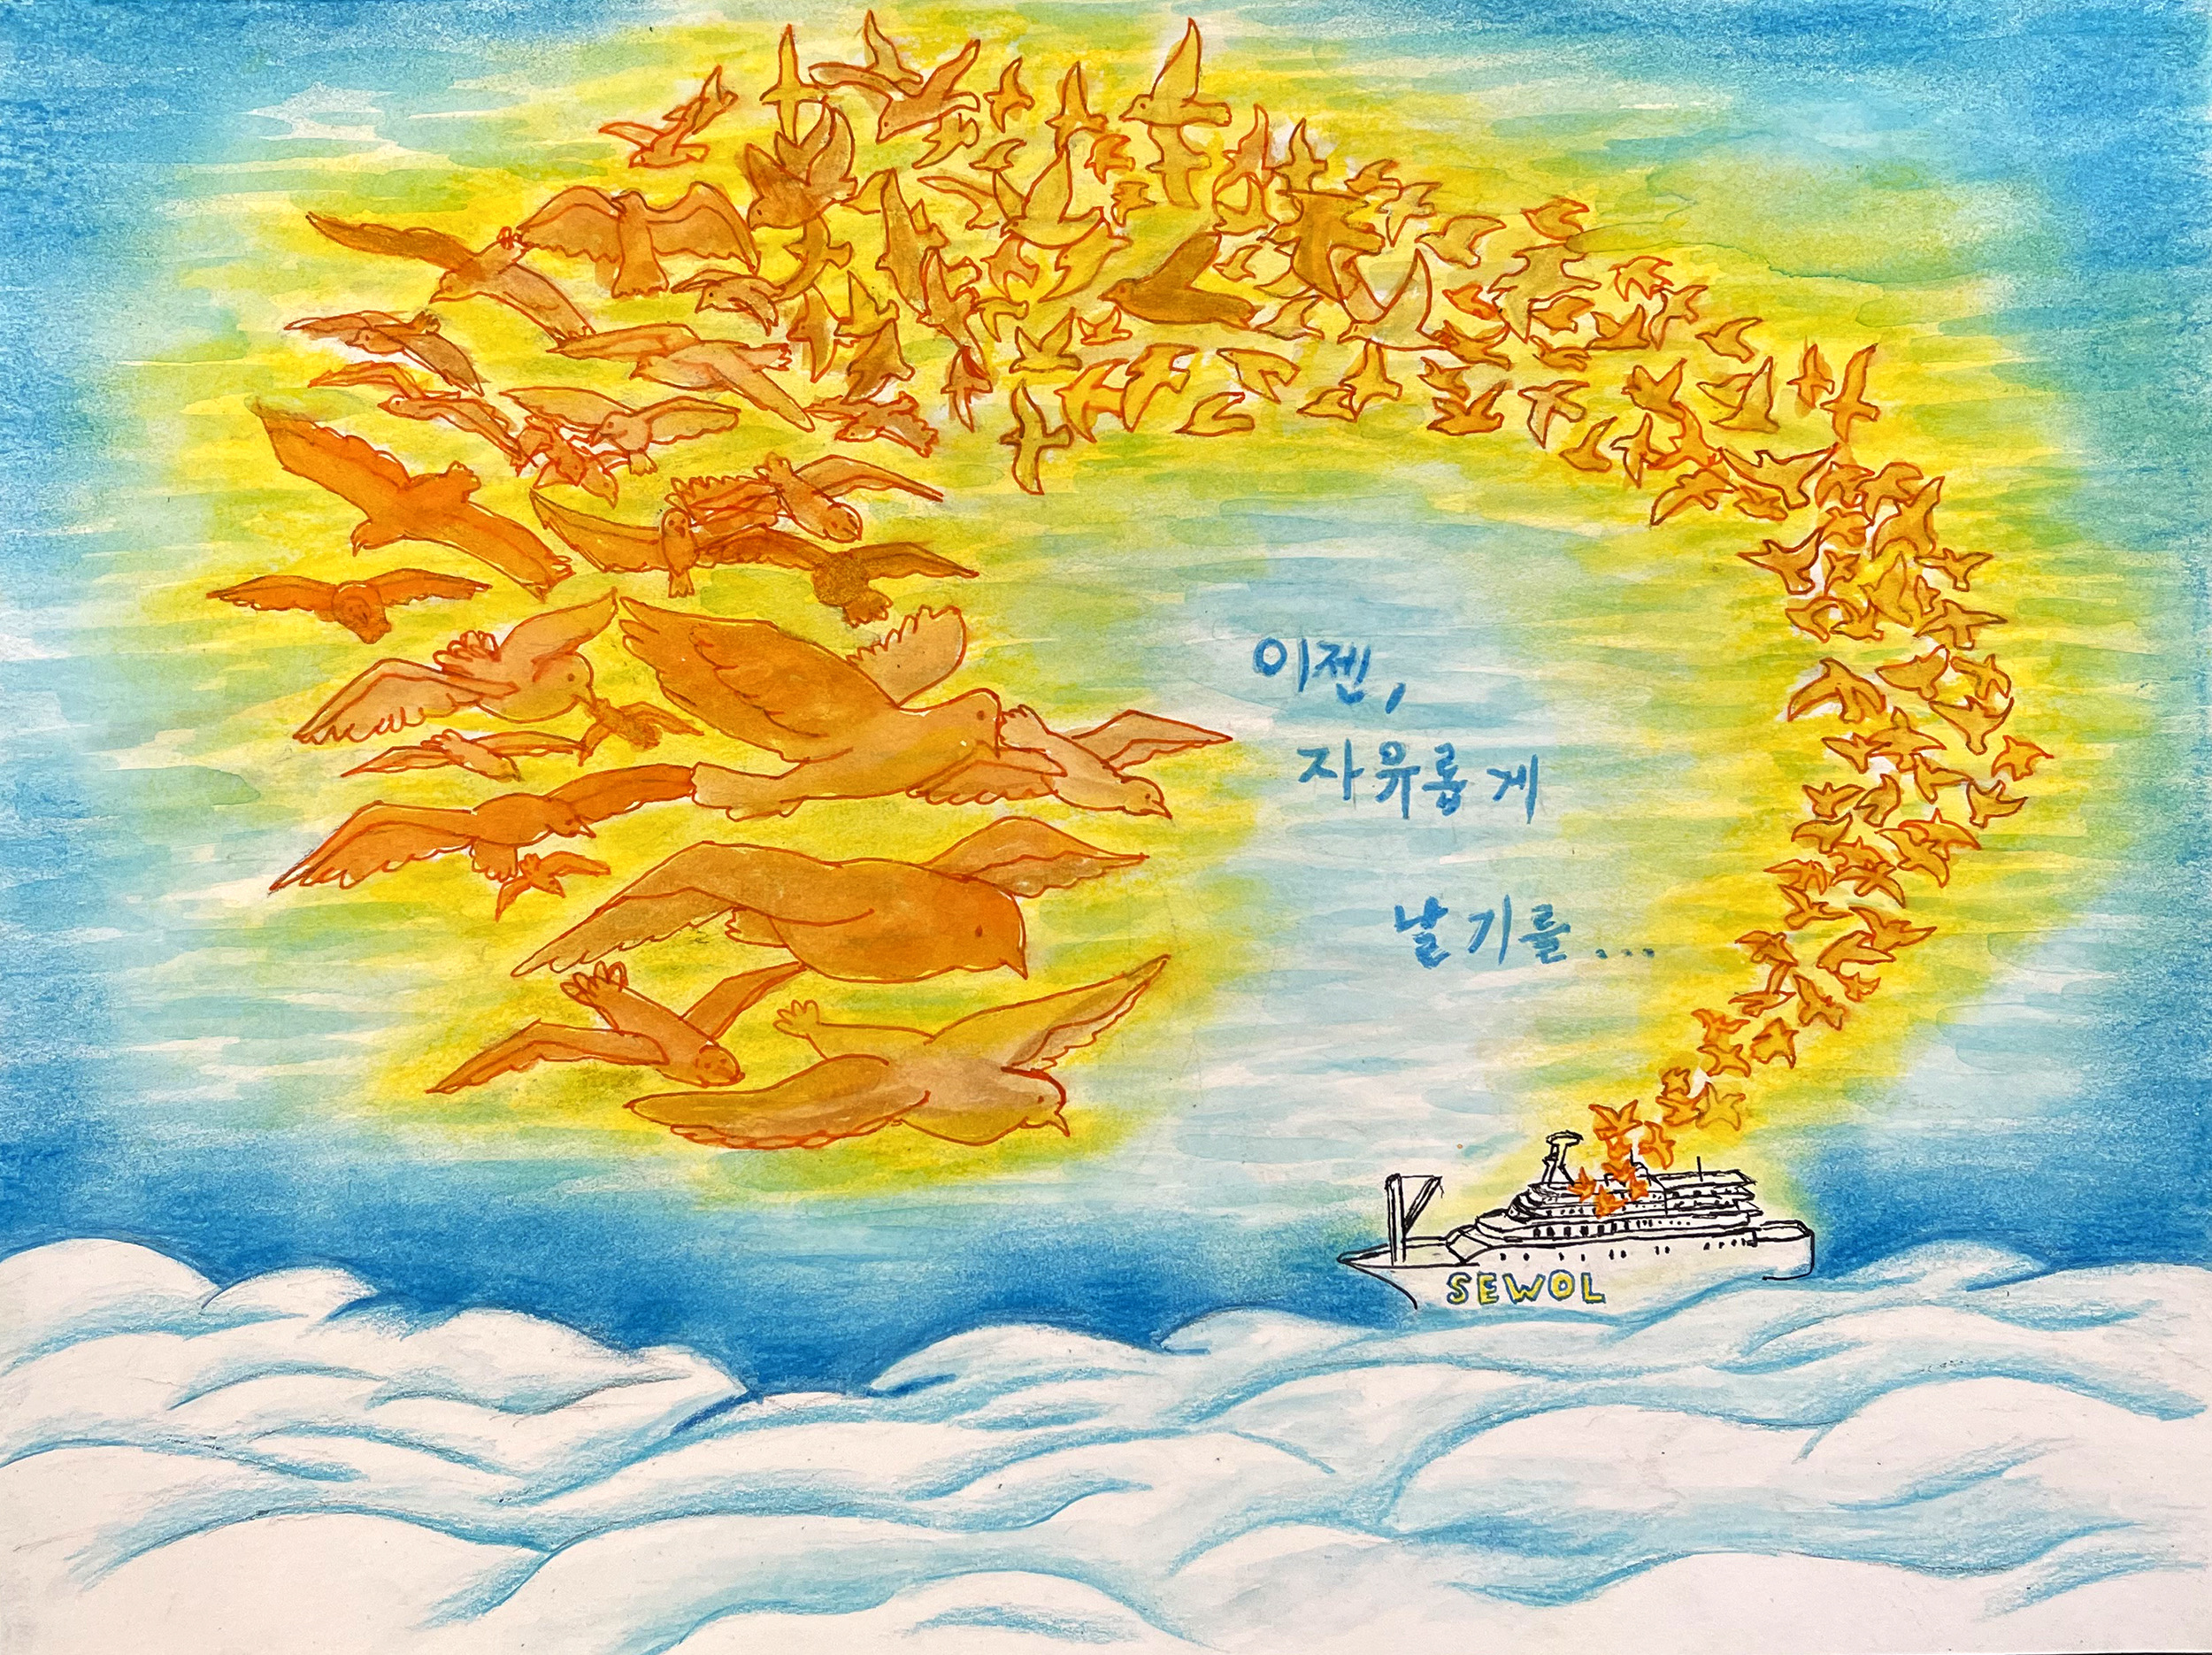 이젠,
자유롭게
날기를...
SEWOL